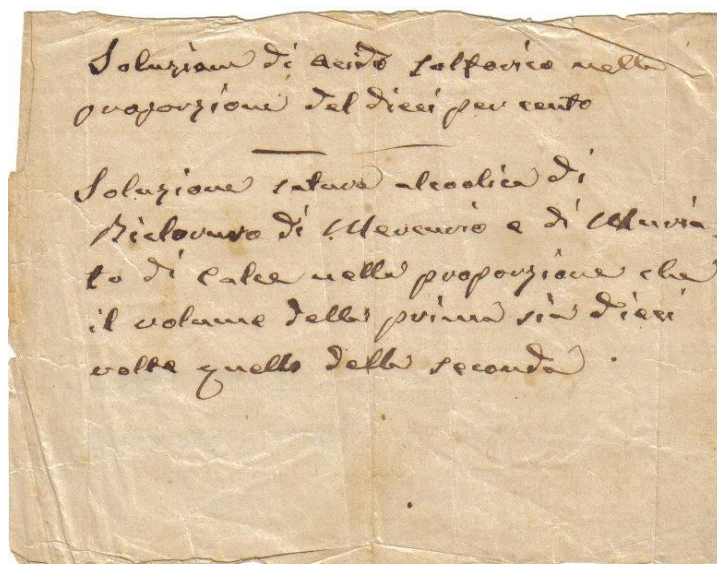 Soluzione di acido solforico nella
proporzione del dieci per cento
Soluzione satura alcoolica di
Bicloruro di Mercurio e di Muria-
to di calce nella proporzione che
il volume della prima sia dieci
volte quello della seconda.